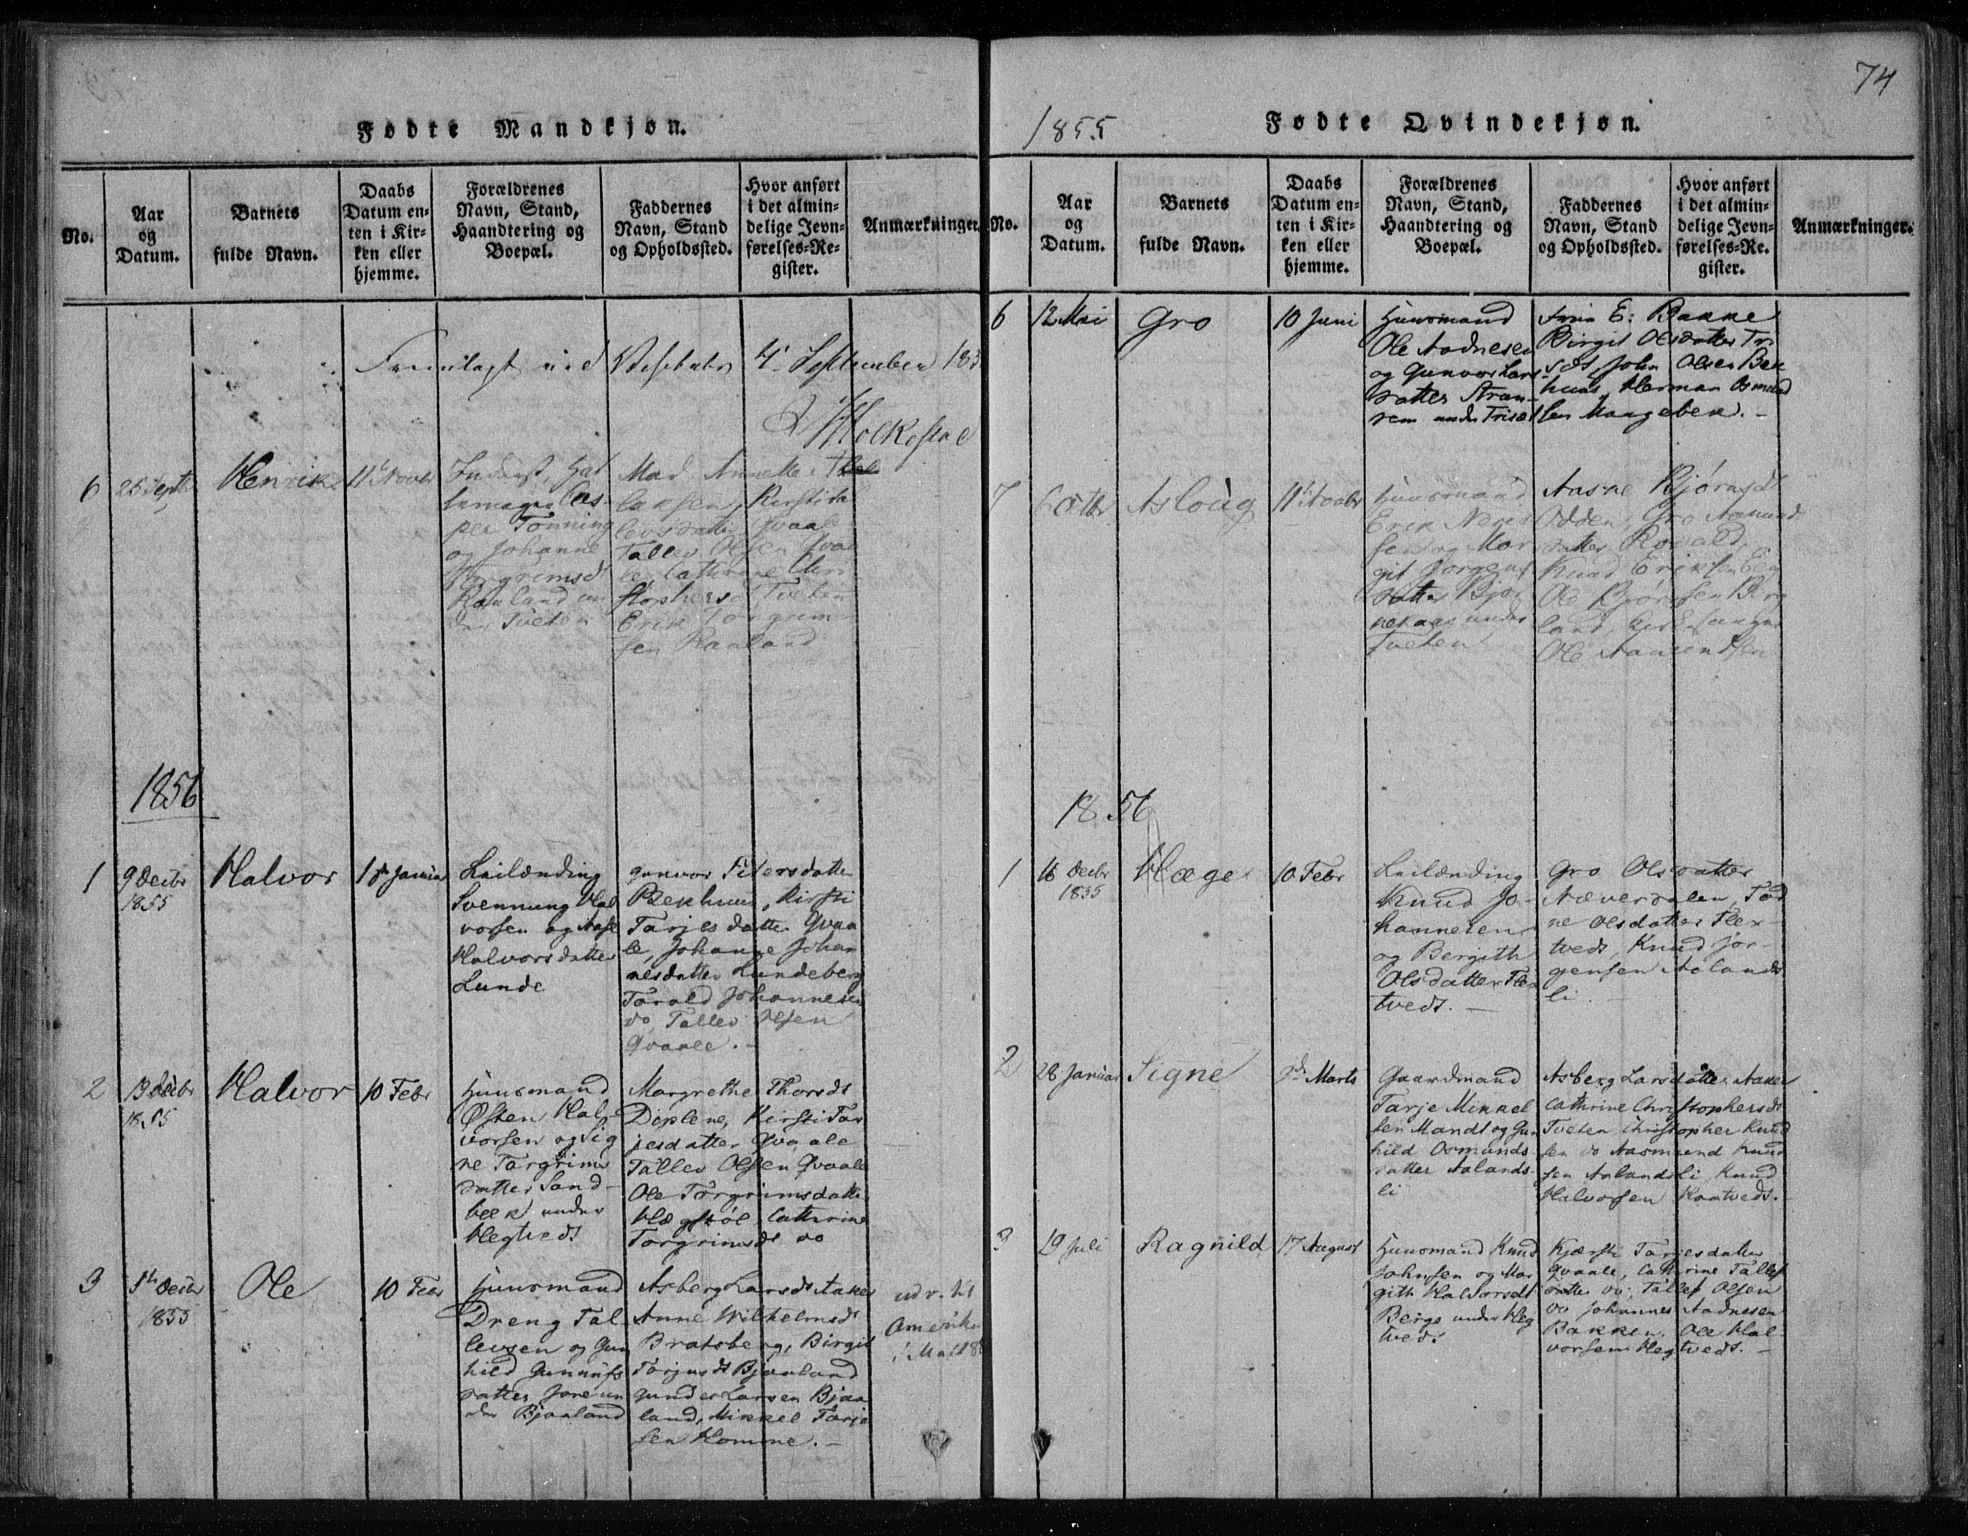 74
Fødte Mandkjøn.
No.
Aar
og
Datum.
Barnets
fulde Navn.
Daabs
Datum en-
ten i Kir-
ken eller
hjemme.
Forældrenes
Navn, Stand,
Haandtering og
Boepæl.
Faddernes
Navn, Stand
og Opholdssted.
Hvor anført
i det almin-
delige Jevn-
førelses-Re-
gister.
Anmærkninger.
Fremlagt ved 4 September 185
6
25 Septbr
Henrik
11te Novbr
Inderst, Hat
temager Cas-
per Tønning
og Johanne
Torgrimsdt
Raaland un
der Tveten
Mad Annette
laksen, Kirsti Ta
levsdatter Qvaale
Tallev Olsen Qvaa
le, Cathrine Chri
stophersdt Tveten
Erik Torgrim-
sen Raaland
1856
1
9 Decbr
1855
Halvor
1ste Januar
Leilænding
Svennung Hal
vorsen og Aase
Halvorsdatter
Lunde
Gunvor Petersdatter
Bekhuus, Kirsti
Tarjesdatter Qvaa
le, Johanne Johan
nesdatter Lundeberg
Tarald Johannesen
do, Tallev Olsen
Qvaale. —
2
13 Decbr
1855
Halvor
10 Febr
Huusmand
Østen Hal-
vorsen og Sig
ne Torgrims
datter Sand-
bek under
Hegtvedt
Margrethe Thorsdt
Diplene, Kirsti Tar
jesdatter Qvaale
Tallev Olsen Qvaale
Ole Torgrimsdatter
Hægstøl, Cathrine
Torgrimsdt do
3
Decbr
1855
Ole
10 Febr
Huusmand
Dreng Tal
levsen og Gun
hild Gunnufs
datter Jore un
der Bjaaland
Asberg Larsdt Aaker
Anne Wilhelmsdt
Bratsberg, Birgit
Torjusdt Bjaaland
Gunder Larsen Bjaa
land, Mikkel Tarje
sen Homme. —
udv. til
Amerika
i Mai 18
1855
Fødte Qvindekjøn.
No.
Aar
og
Datum.
Barnets
fulde Navn.
Daabs
Datum en-
ten i Kir-
ken eller
hjemme.
Forældrenes
Navn, Stand,
Haandtering og
Boepæl.
Faddernes
Navn, Stand
og Opholdssted.
Hvor anført
i det almin-
delige Jevn-
førelses-Re-
gister.
Anmærkninger.
6
12 Mai
Gro
10 Juni
Huusmand
Ole Aadnesen
og Gunvor Lars
datter Stran-
rem under Trisæt
E: Bakke
Birgit Olsdatter Tri
sæt, John Olsen Bek
huus, Herman Osmund
sen Haugebek. —
7
6 Octbr
Asloug
11te Novbr
Huusmand
Erik Neris
sen og Mar
git Jørgens
datter Bjør
nekaas under
Tveten
Aasne Bjørnsdt
Odden, Gro Aamund
datter Rovald,
Knud Eriksen
Ole Bjørnsen Berg
land, Kirkesanger
Ole Aanundsen
1856
1
16 Decbr
1855
Hæge
10 Febr
Leilænding
Knud Jo-
hannesen
og Bergith
Olsdatter Flek
tvedt. —
Gro Olsdatter
Næverdalen, Tad
ne Olsdatter Flek-
tvedt, Knud Jør-
gensen Aalands
li. —
2
28 Januar
Signe
9de Marts
Gaardmand
Tarje Mikkel
sen Mandt og Gun
hild Osmunds
datter Aalands-
li
Asberg Larsdatter Aaker
Cathrine Christophersdt
Tveten Christopher Knud
sen do Aasmund Knud
sen Aalandsli, Knud
Halvorsen Kaatvedt. —
3
19 Juli
Ragnild
17 August
Huusmand Knud
Johnsen og Mar
gith Halvorsdt
Berge under Heg
tvedt
Kjersti Tarjesdatter
Qvaale, Cathrine Tallef
datter do, Tallef Olsen
do Johannes Aadnesen
Bakken, Ole Hal-
vorsen Hegtvedt. —